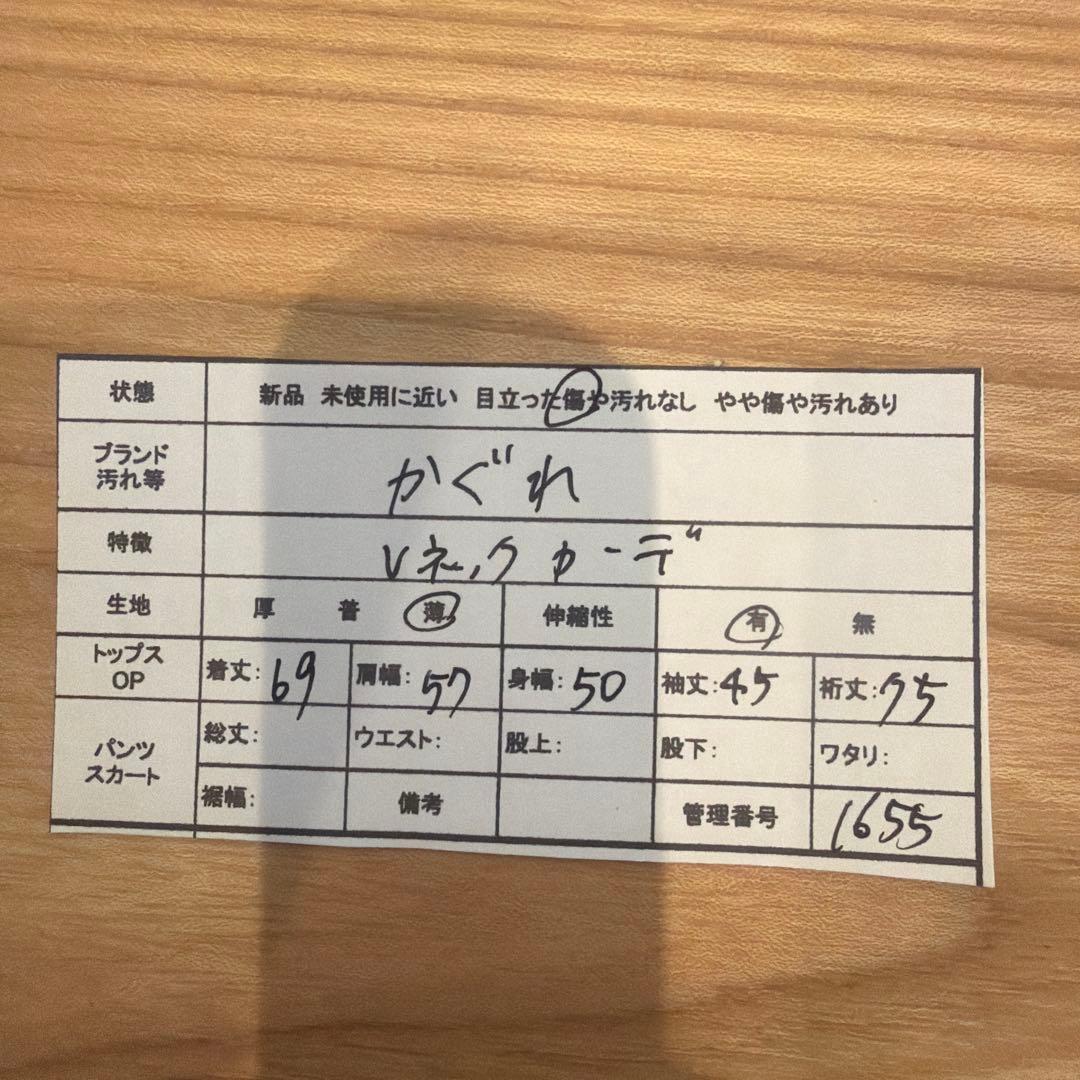 状態 新品 未使用に近い 目立った傷や汚れなし やや傷や汚れあり
ブランド
汚れ等 かぐれ
特徴 Vネックカーデ
生地 厚 普 薄 伸縮性 有 無
トップス
OP 着丈:69 肩幅:57 身幅:50 袖丈:45 裄丈:75
パンツ
スカート 総丈: ウエスト: 股上: 股下: ワタリ:
裾幅: 備考 管理番号 1655